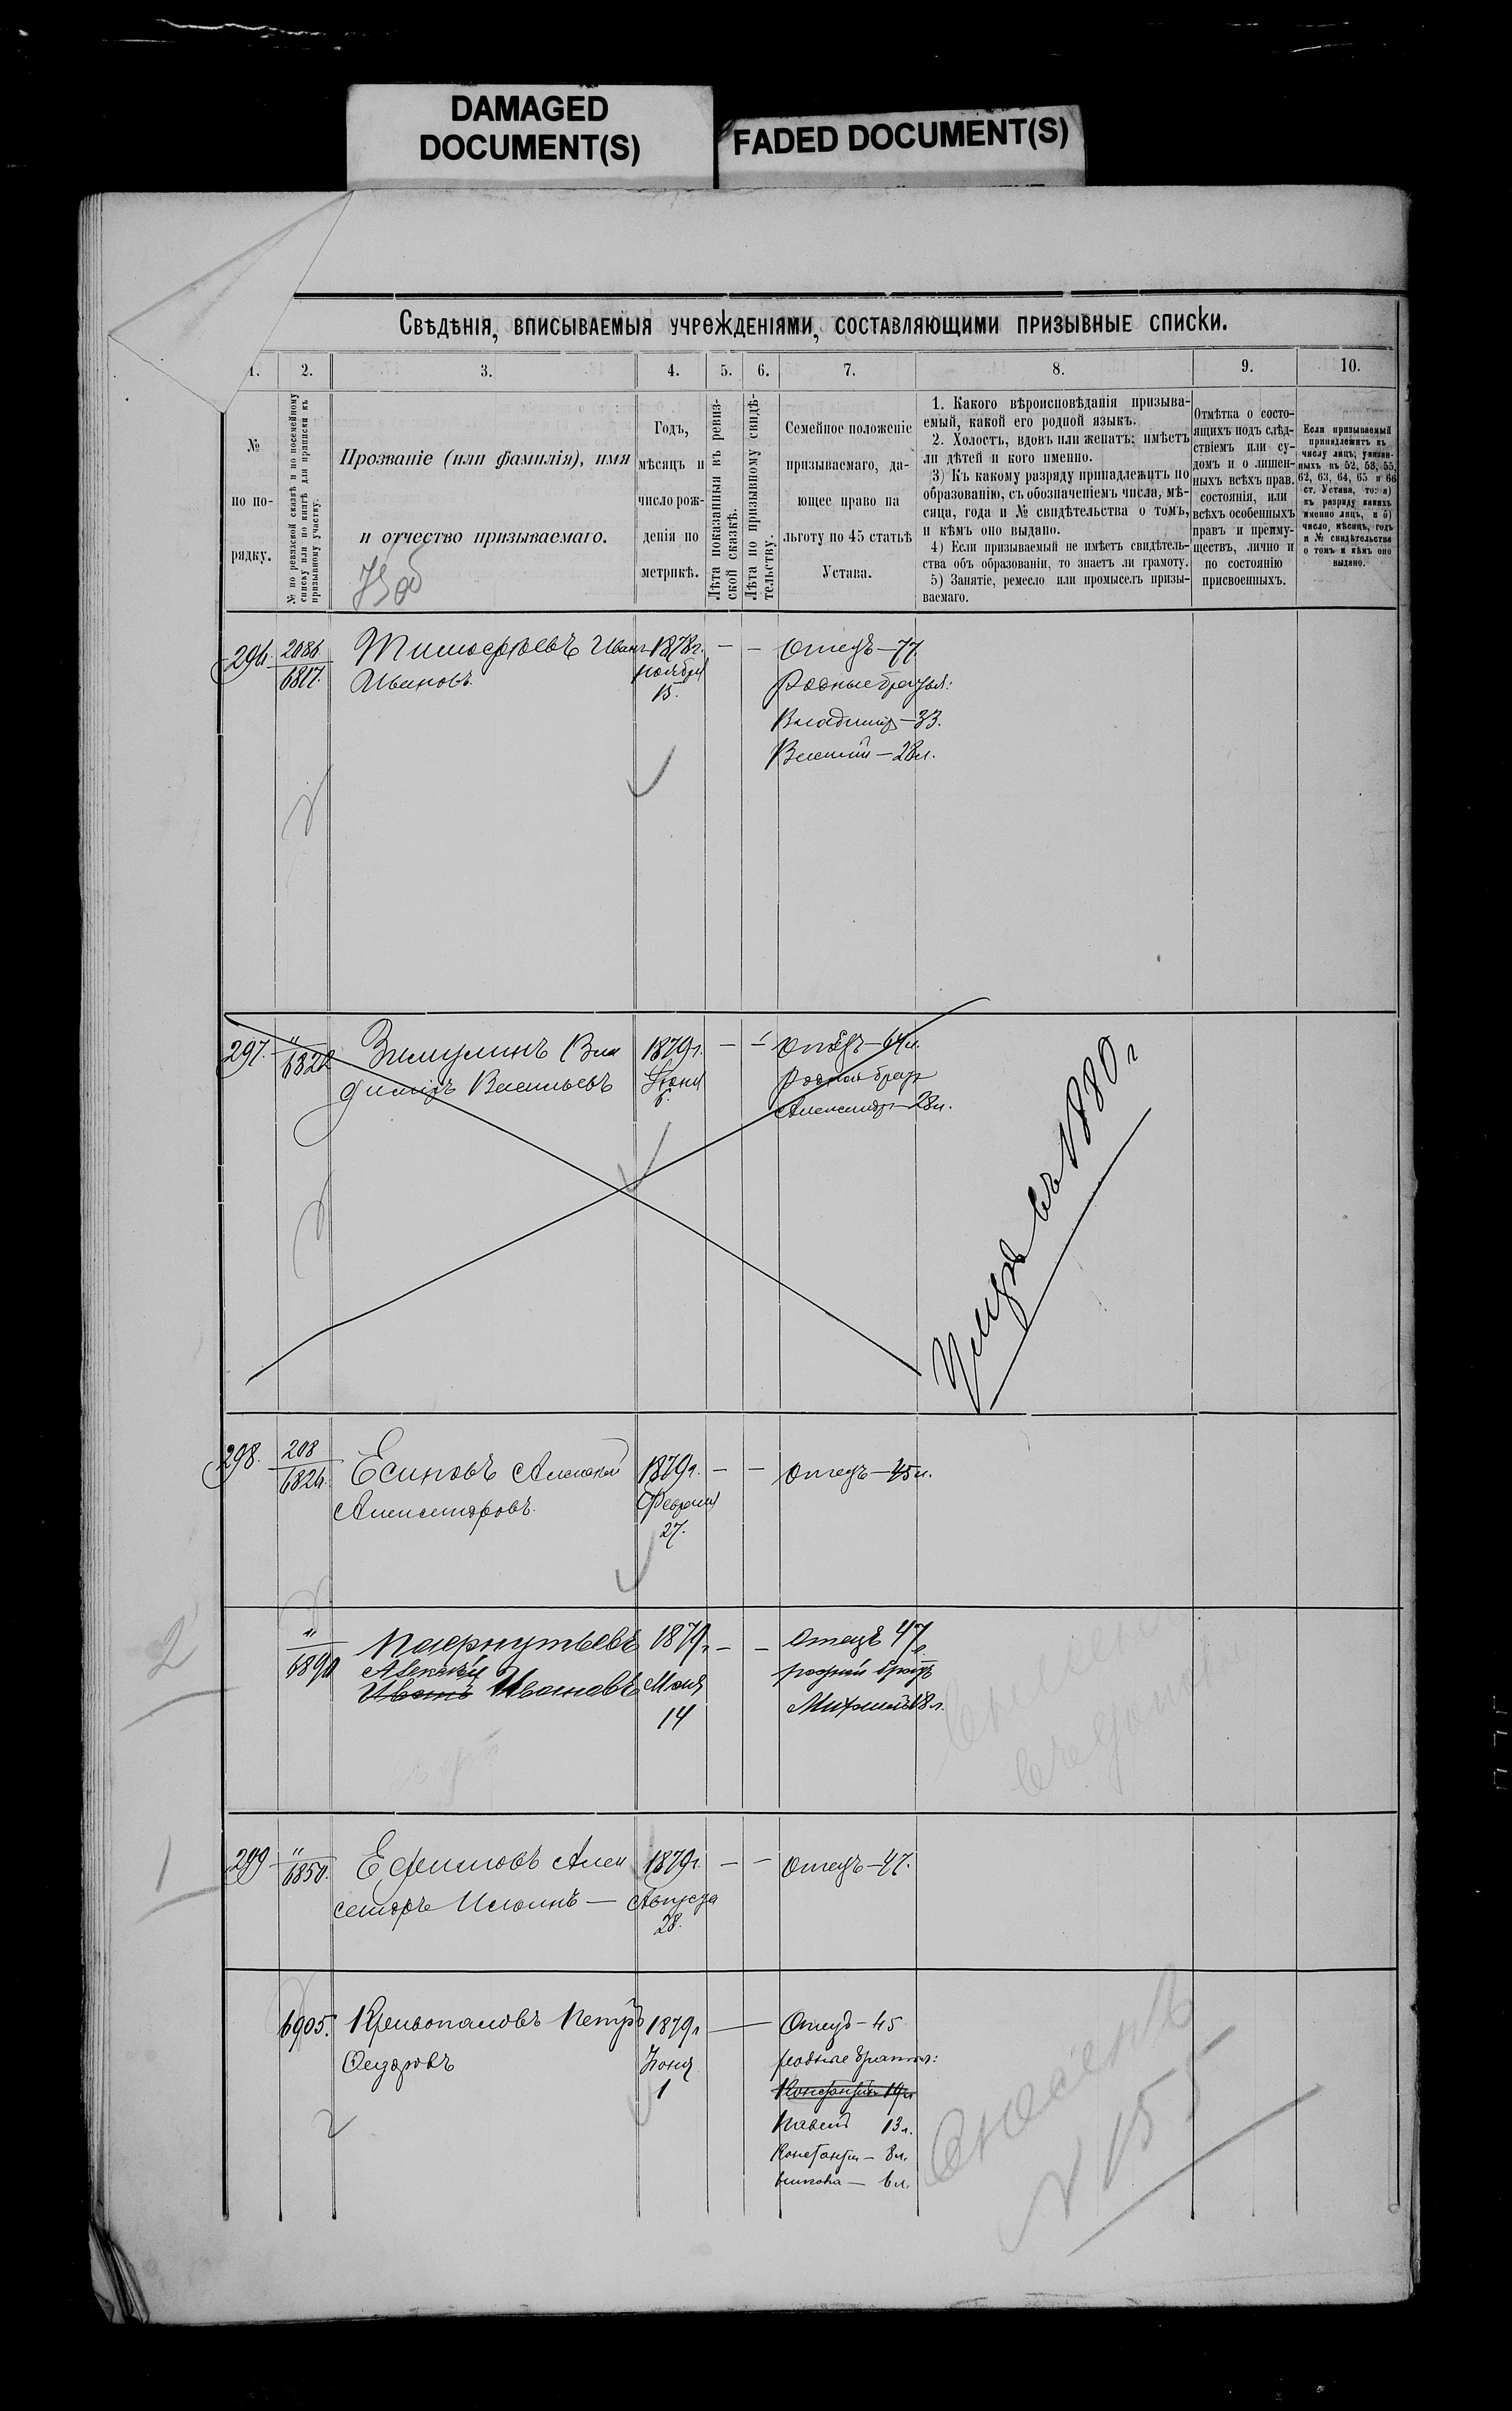 DAMAGED
DOCUMENT(S)
FADED DOCUMENT(S)
Свѣдѣнія, вписываемыя учрежденіями, составляющими призывные списки.
1. 2. 3. 4. 5. 6. 7. 8. 9. 10.
№
по по-
рядку.
№ по ревизской сказкѣ и по посемейному
списку или по книгѣ для приписки къ
призывному участку.
Прозваніе (или фамилія), имя
и отчество призываемаго.
Годъ,
мѣсяцъ и
число рож-
денія по
метрикѣ.
Лѣта показанныя въ ревиз-
ской сказкѣ.
Лѣта по призывному свидѣ-
тельству.
Семейное положеніе
призываемаго, да-
ющее право на
льготу по 45 статьѣ
Устава.
1. Какого вѣроисповѣданія призыва-
емый, какой его родной языкъ.
2. Холостъ, вдовъ или женатъ; имѣетъ
ли дѣтей и кого именно.
3) Къ какому разряду принадлежитъ по
образованію, съ обозначеніемъ числа, мѣ-
сяца, года и № свидѣтельства о томъ,
и кѣмъ оно выдано.
4) Если призываемый не имѣетъ свидѣтель-
ства объ образованіи, то знаетъ ли грамоту.
5) Занятіе, ремесло или промыселъ призы-
ваемаго.
Отмѣтка о состо-
ящихъ подъ слѣд-
ствіемъ или су-
домъ и о лишен-
ныхъ всѣхъ прав.
состоянія, или
всѣхъ особенныхъ
правъ и преиму-
ществъ, лично и
по состоянію
присвоенныхъ.
Если призываемый
принадлежитъ къ
числу лицъ, указан-
ныхъ въ 52, 53, 55,
62, 63, 64, 65 и 66
ст. Устава, то: а)
къ разряду какихъ
именно лицъ, и б)
число, мѣсяцъ, годъ
и № свидѣтельства
о томъ и кѣмъ оно
выдано.
296. 2086 Тимофѣевъ Иванъ 1878г. — — Отецъ — 77.
6817. Ивановъ. ноября Родные братья:
15. Владиміръ — 33.
Василій — 28л.
297. " Вла 1879г. — — Отецъ — 64л.
6822 диміръ Васильевъ Іюня Родной братъ
Александръ — 28л.
въ 1880г
298. 208 Есиповъ Алексѣй 1879г. — — Отецъ — 45л.
6826. Александровъ. Февраля
27.
2
" Пафнутьевъ 1879г — — Отецъ 47
6890 Алексѣй родной братъ
Иванъ Ивановъ Мая Михаилъ 18л.
14
1
299 " Ефимовъ Алек 1879г. — — Отецъ — 47.
6850. сандръ Ильинъ — Августа
28.
6905. Кривопаловъ Петръ 1879г — Отецъ — 45
Федоровъ Іюня родные братья:
1 Константинъ 19л
Павелъ 13л.
Константин — 8л.
6л.
№ 155